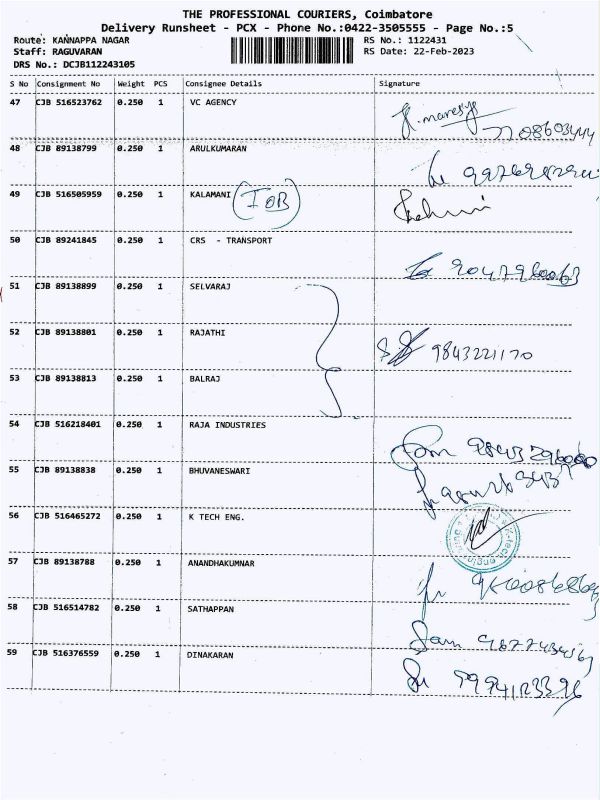 THE PROFESSIONAL COURIERS, Coimbatore
Delivery Runsheet - PCX - Phone No.:0422-3505555 - Page No.:5
Route: KANNAPPA NAGAR RS No.: 1122431
Staff: RAGUVARAN RS Date: 22-Feb-2023
DRS No.: DCJB112243105
S No Consignment No Weight PCS Consignee Details Signature
47 CJB 516523762 0.250 1 VC AGENCY
7708603444
48 CJB 89138799 0.250 1 ARULKUMARAN
49 CJB 516505959 0.250 1 KALAMANI (IOB)
50 CJB 89241845 0.250 1 CRS - TRANSPORT
51 CJB 89138899 0.250 1 SELVARAJ
52 CJB 89138801 0.250 1 RAJATHI 9843221170
53 CJB 89138813 0.250 1 BALRAJ
54 CJB 516218401 0.250 1 RAJA INDUSTRIES
55 CJB 89138838 0.250 1 BHUVANESWARI
56 CJB 516465272 0.250 1 K TECH ENG.
57 CJB 89138788 0.250 1 ANANDHAKUMNAR
58 CJB 516514782 0.250 1 SATHAPPAN
59 CJB 516376559 0.250 1 DINAKARAN